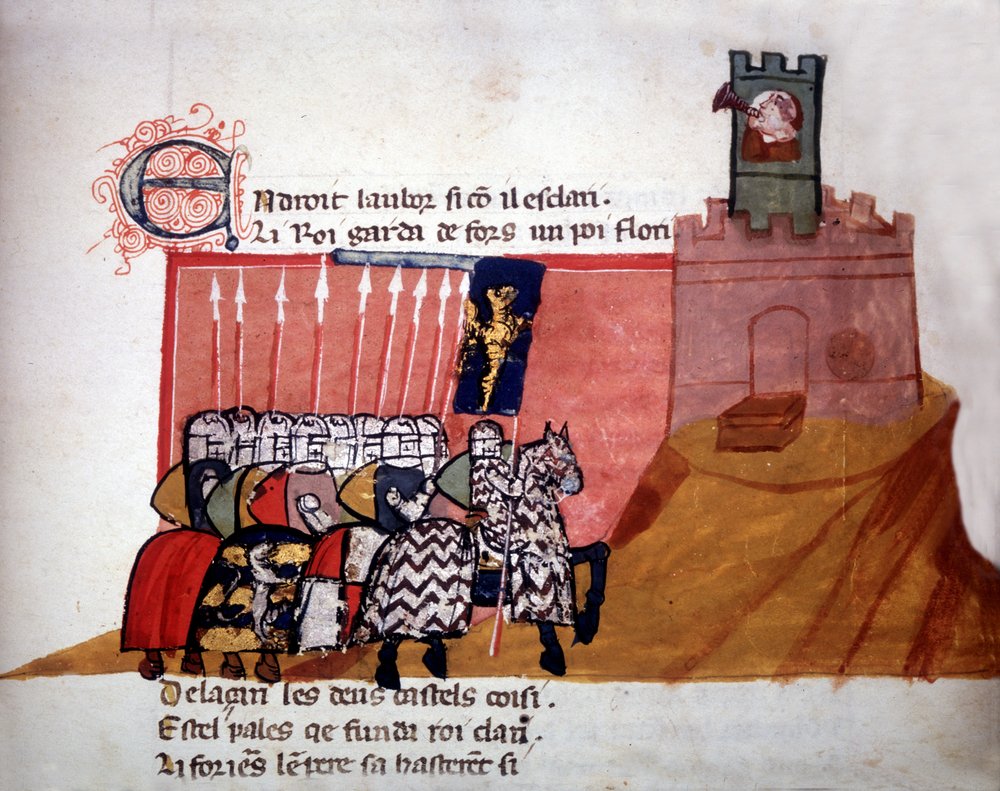 Endroit laubor si cō il esclari.
Li Roi garda de fors un poi flori
De laçin les deus castels coisi.
Estel pales qe funda roi clari.
Li foriēs lēpere sa hasterēt si